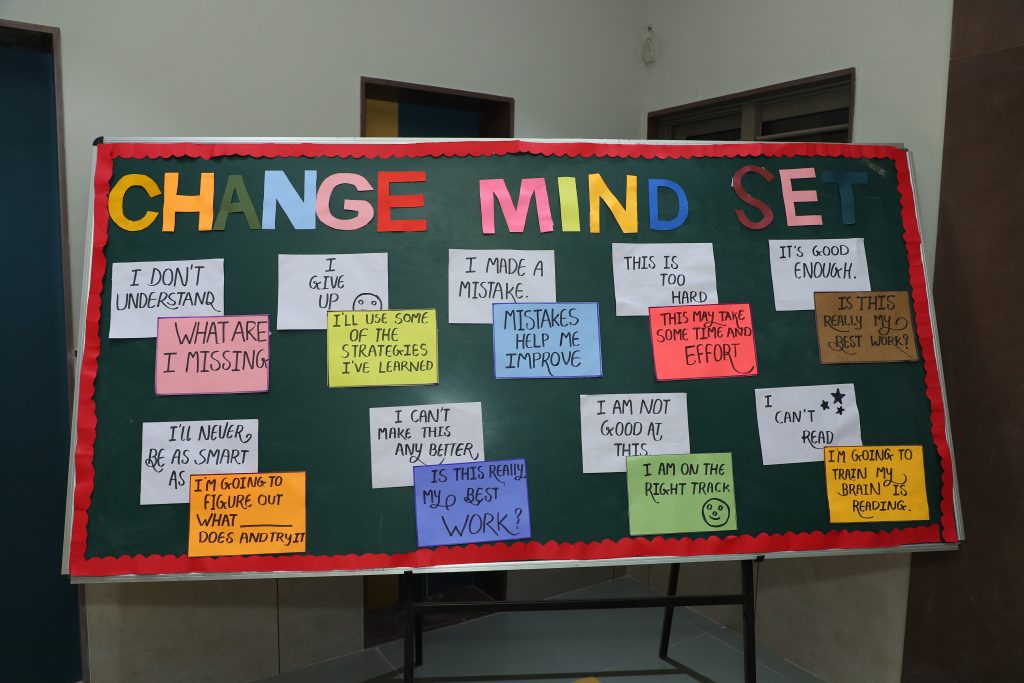 CHANGE MIND SET
I DON'T
UNDERSTAND
WHAT ARE
I MISSING
I
GIVE
UP
I'LL USE SOME
OF THE
STRATEGIES
I'VE LEARNED
I MADE A
MISTAKE.
MISTAKES
HELP ME
IMPROVE
THIS IS
TOO
HARD
THIS MAY TAKE
SOME TIME AND
EFFORT
IT'S GOOD
ENOUGH.
IS THIS
REALLY MY
BEST WORK?
I'LL NEVER
BE AS SMART
AS
I'M GOING TO
FIGURE OUT
WHAT ______
DOES AND TRY IT
I CAN'T
MAKE THIS
ANY BETTER
IS THIS REALLY
MY BEST
WORK?
I AM NOT
GOOD AT
THIS
I AM ON THE
RIGHT TRACK
I
CAN'T
READ
I'M GOING TO
TRAIN MY
BRAIN IS
READING.